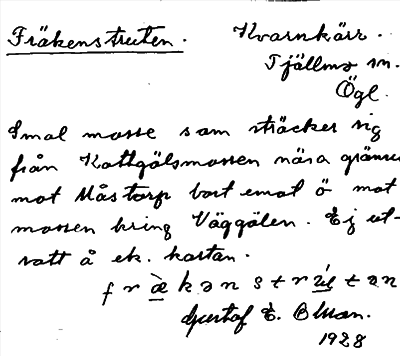 Fräkenstruten. Kvarnkärr.
Tjällmo sn.
Ögl.
Smal mosse som sträcker sig
från Kattgölsmossen nära gränsen
mot Måstorp bort emot ö mot
mossen kring Väggölen. Ej ut-
satt å ek. kartan.
Gustaf E. Olsson.
1928